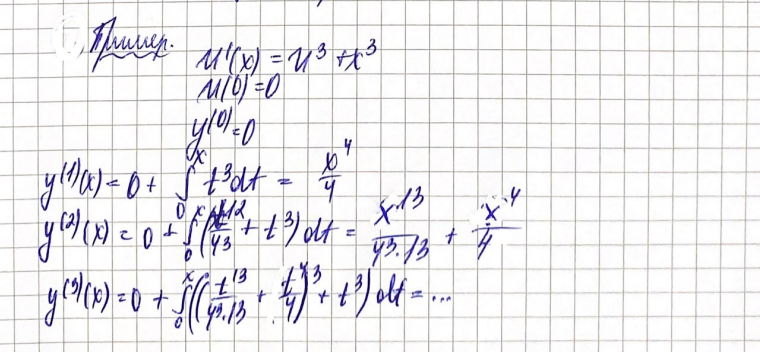 Пример.
u'(x) = u³ + x³
u(0) = 0
y⁽⁰⁾ = 0
y⁽¹⁾(x) = 0 + ∫₀ˣ t³dt = x⁴/4
y⁽²⁾(x) = 0 + ∫₀ˣ (t¹²/4³ + t³) dt = x¹³/(4³·13) + x⁴/4
y⁽³⁾(x) = 0 + ∫₀ˣ ((t¹³/(4³·13) + t⁴/4)³ + t³) dt = ...